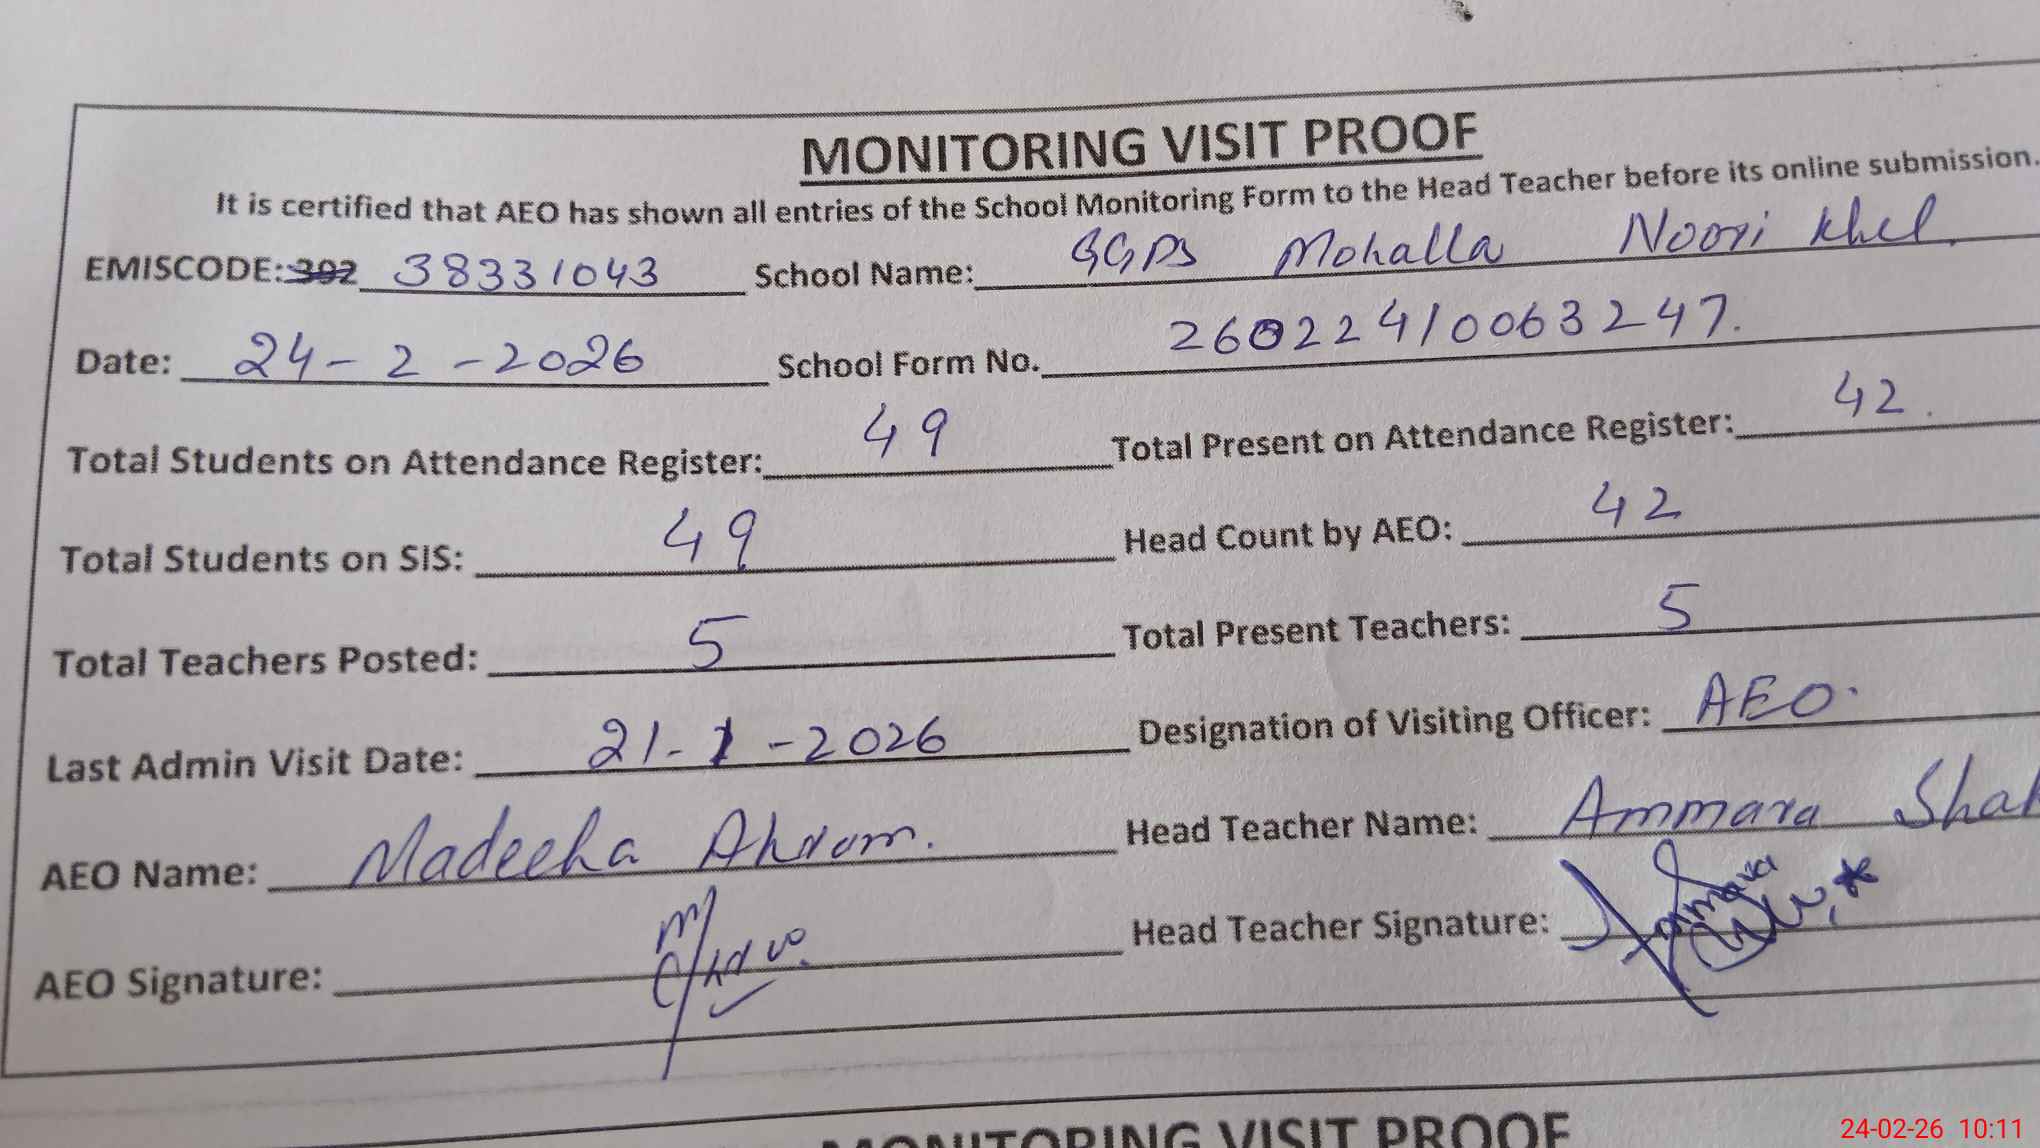 MONITORING VISIT PROOF
It is certified that AEO has shown all entries of the School Monitoring Form to the Head Teacher before its online submission.
EMISCODE: 392 38331043 School Name: GGPS Mohalla Noori Khel.
Date: 24-2-2026 School Form No. 26022410063247.
Total Students on Attendance Register: 49 Total Present on Attendance Register: 42.
Total Students on SIS: 49 Head Count by AEO: 42
Total Teachers Posted: 5 Total Present Teachers: 5
Last Admin Visit Date: 21-1-2026 Designation of Visiting Officer: AEO.
AEO Name: Madeeha Akram. Head Teacher Name: Ammara Shah
AEO Signature: Head Teacher Signature: Ammara
MONITORING VISIT PROOF
24-02-26 10:11